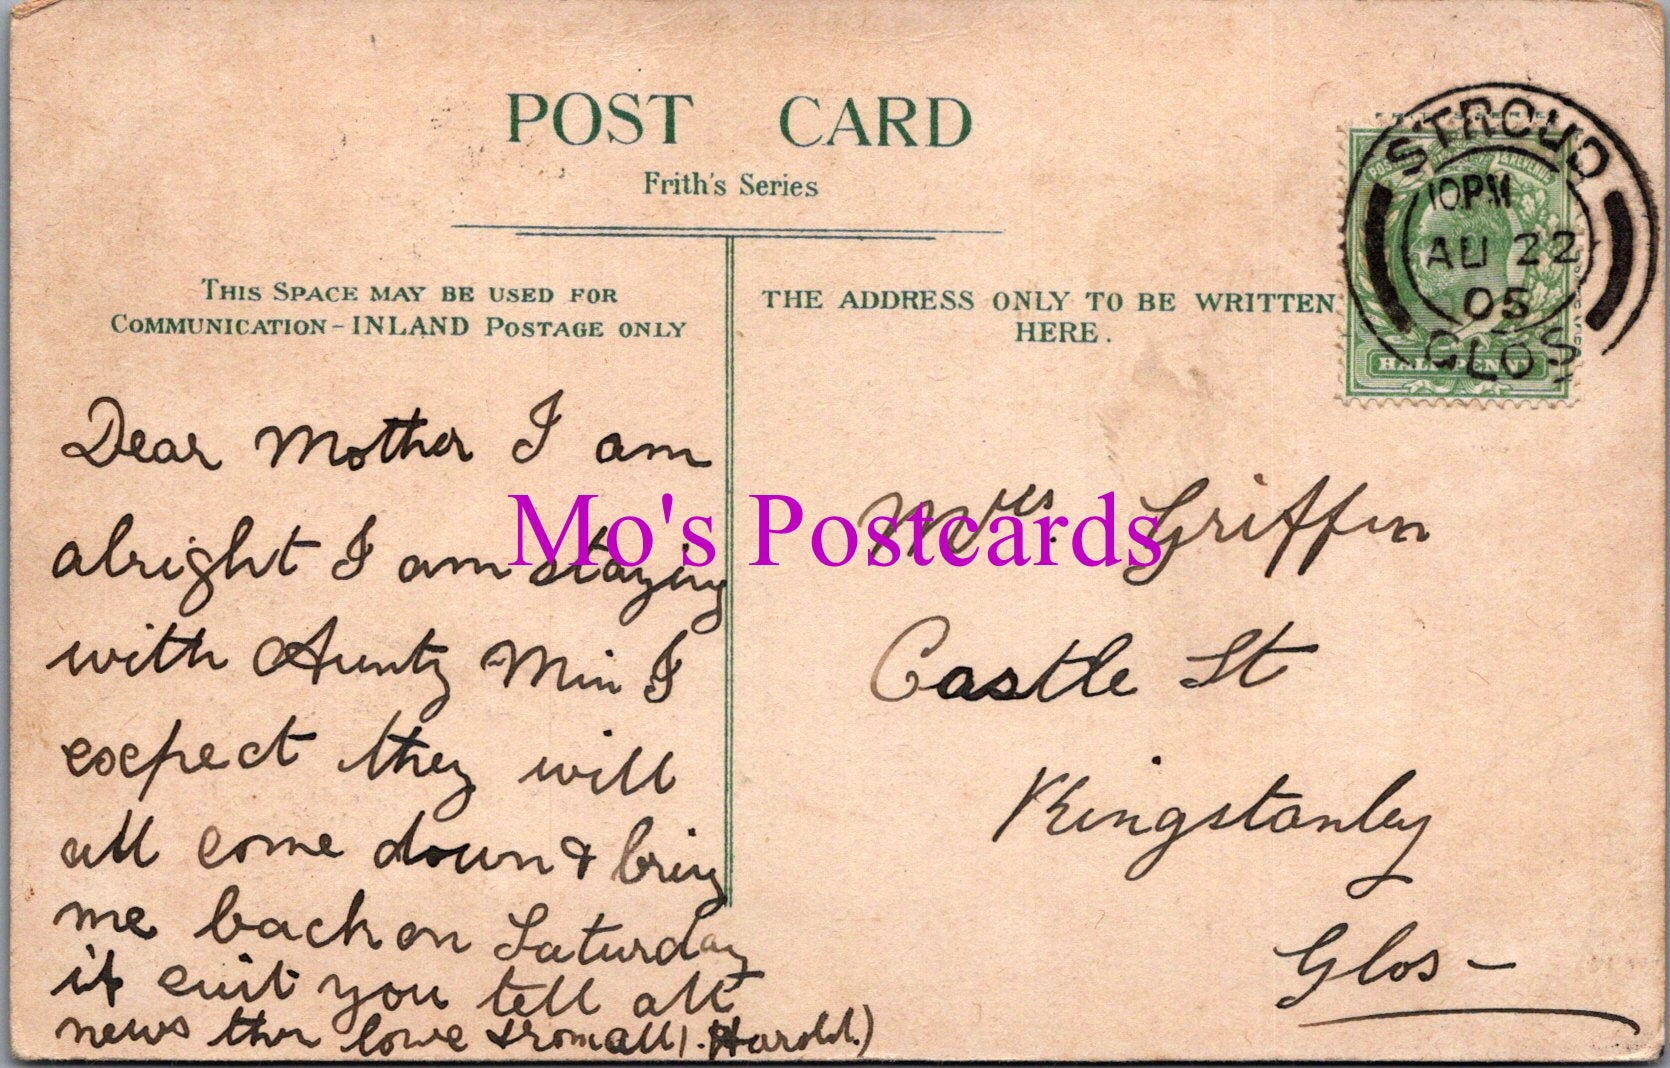 POST CARD
Frith's Series
THIS SPACE MAY BE USED FOR
COMMUNICATION - INLAND POSTAGE ONLY
THE ADDRESS ONLY TO BE WRITTEN
HERE.
STROUD
10 PM
AU 22
05
GLOS
POSTAGE & REVENUE
HALFPENNY
Dear Mother I am
alright I am staying
with Aunty Min I
excpect they will
all come down & bring
me back on Saturday
if suit you tell all
news then love from all. Harold.)
Mo's Postcards
Mrs. Griffin
Castle St
Kingstanley
Glos -